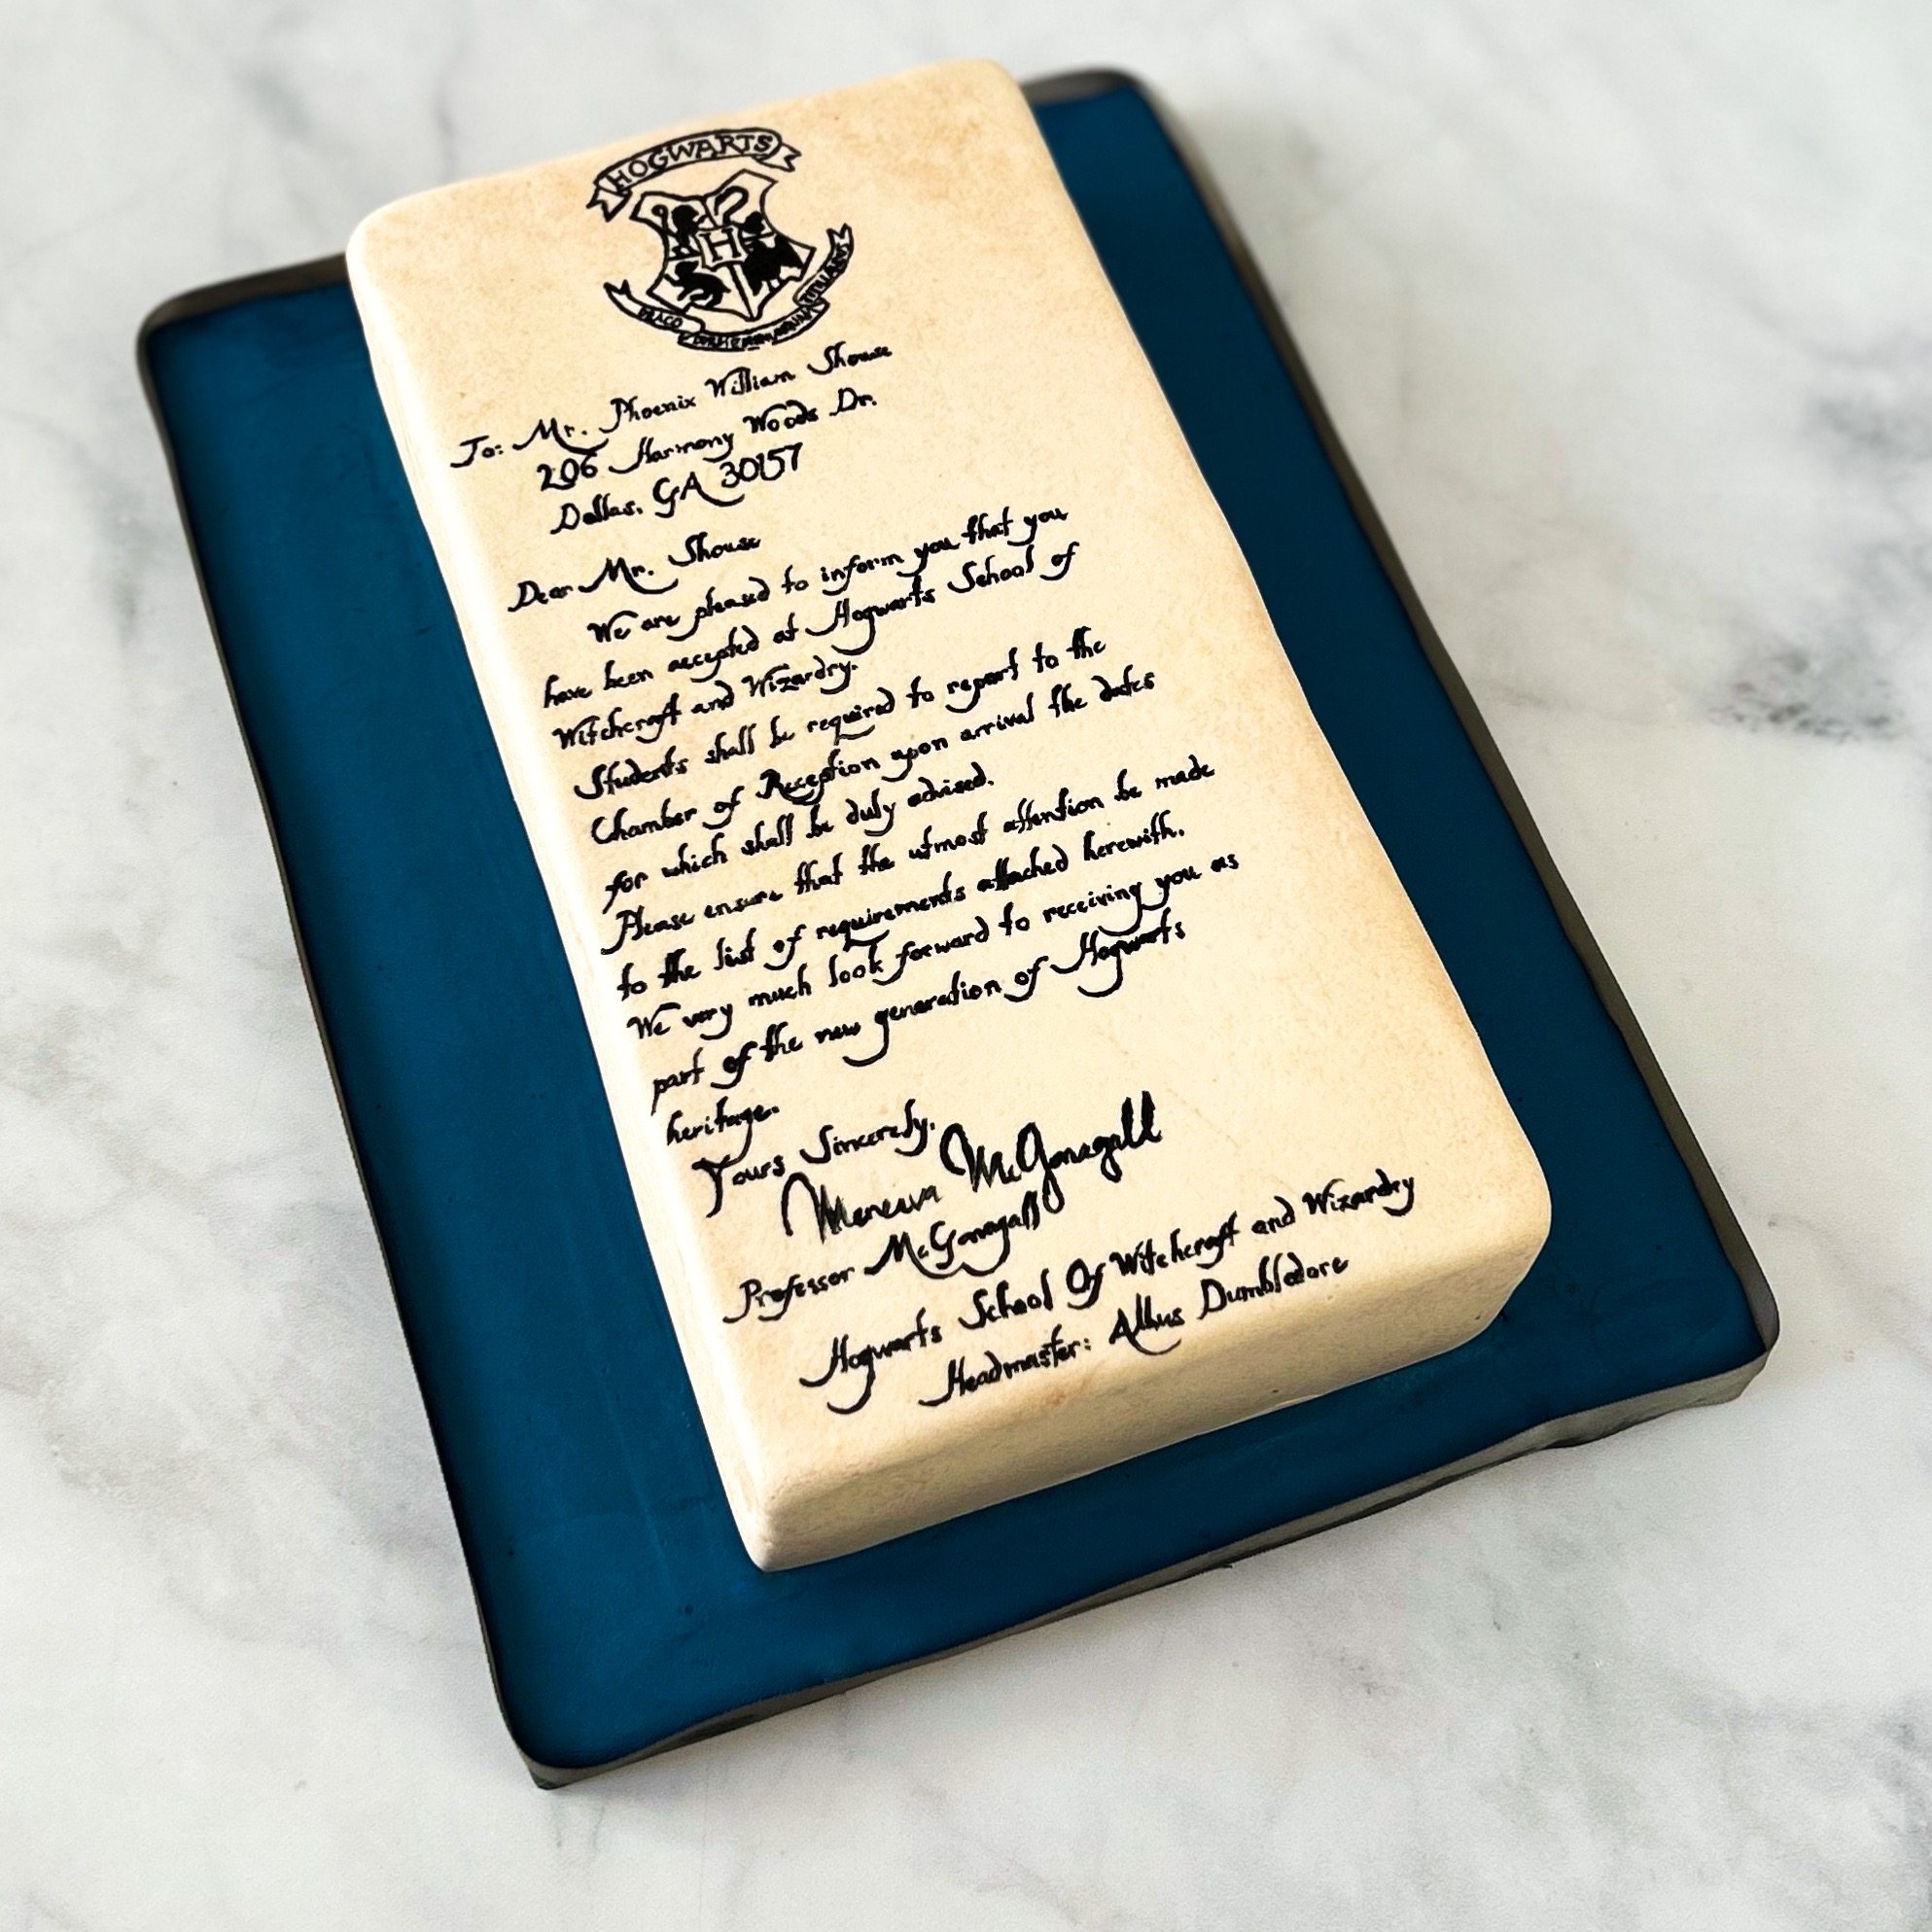 HOGWARTS
H
DRACO DORMIENS NUNQUAM TITILLANDUS
To: Mr. Phoenix William Shouse
206 Harmony Woods Dr.
Dallas, GA 30157
Dear Mr. Shouse
We are pleased to inform you that you
have been accepted at Hogwarts School of
Witchcraft and Wizardry.
Students shall be required to report to the
Chamber of Reception upon arrival the dates
for which shall be duly advised.
Please ensure that the utmost attention be made
to the list of requirements attached herewith.
We very much look forward to receiving you as
part of the new generation of Hogwarts
heritage.
Yours Sincerely,
Minerva McGonagall
Professor McGonagall
Hogwarts School Of Witchcraft and Wizardry
Headmaster: Albus Dumbledore